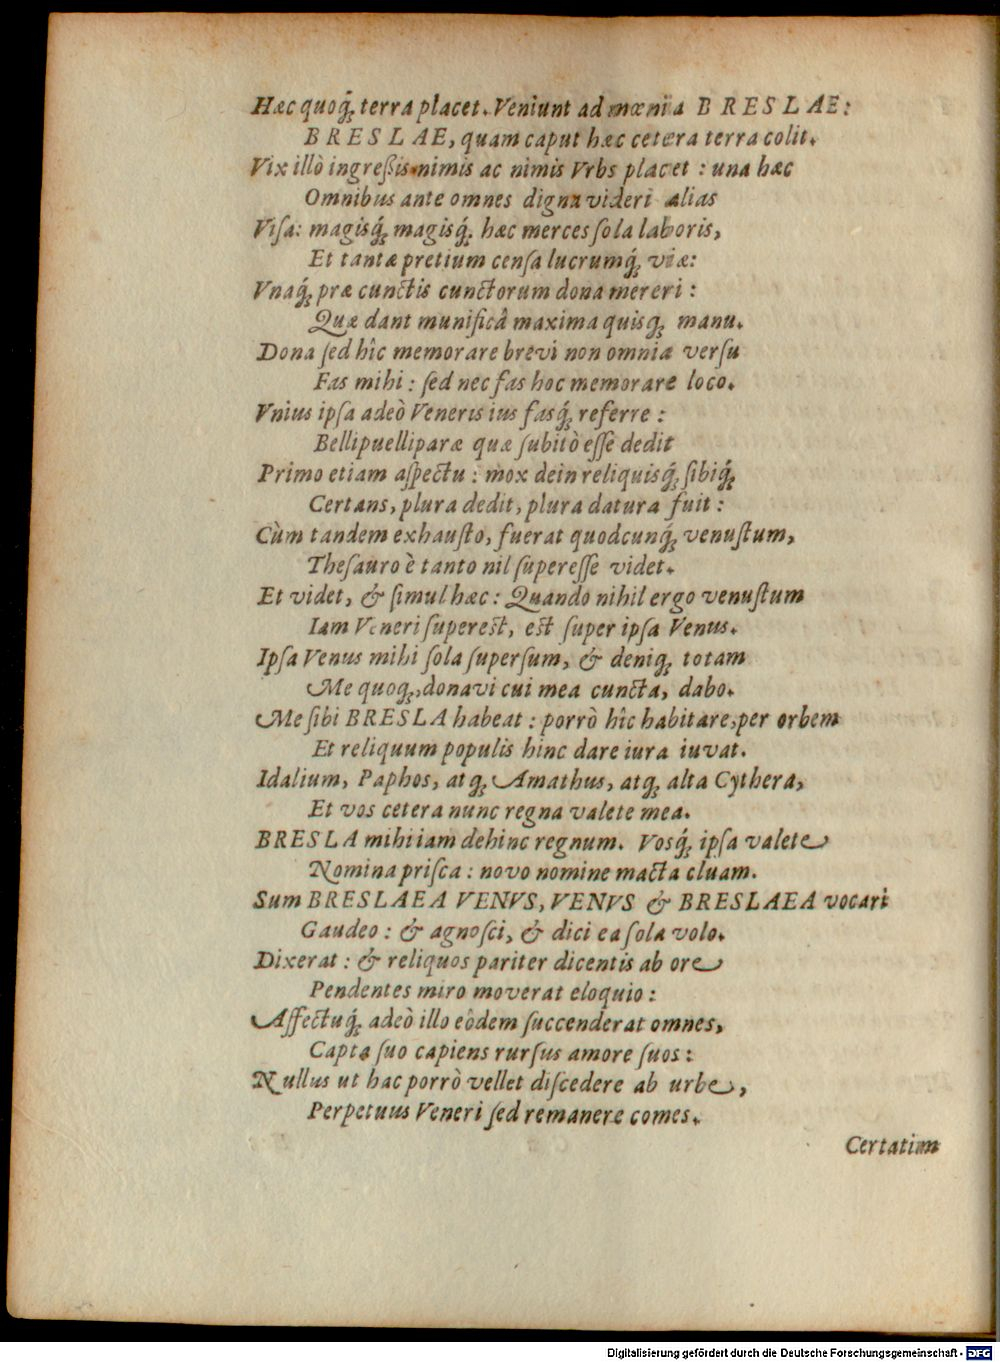 Hæc quoq́; terra placet. Veniunt ad mœnia BRESLAE:
BRESLAE, quam caput hæc cetera terra colit.
Vix illò ingreßis nimis ac nimis Vrbs placet : una hæc
Omnibus ante omnes digna videri alias
Viſa: magisq́; magisq́; hæc merces ſola laboris,
Et tantæ pretium cenſa lucrumq́; viæ:
Vnaq́; præ cunctis cunctorum dona mereri :
Quæ dant munificâ maxima quisq; manu.
Dona ſed hîc memorare brevi non omnia verſu
Fas mihi : ſed nec fas hoc memorare loco.
Vnius ipſa adeò Veneris ius fasq́; referre :
Bellipuelliparæ quæ ſubitò eſſe dedit
Primo etiam aſpectu : mox dein reliquisq́; ſibiq́;
Certans, plura dedit, plura datura fuit :
Cùm tandem exhauſto, fuerat quodcunq́; venuſtum,
Theſauro è tanto nil ſupereſſe videt.
Et videt, & ſimul hæc : Quando nihil ergo venuſtum
Iam Veneri ſupereſt, eſt ſuper ipſa Venus.
Ipſa Venus mihi ſola ſuperſum, & deniq; totam
Me quoq;, donavi cui mea cuncta, dabo.
Me ſibi BRESLA habeat : porrò hîc habitare, per orbem
Et reliquum populis hinc dare iura iuvat.
Idalium, Paphos, atq; Amathus, atq; alta Cythera,
Et vos cetera nunc regna valete mea.
BRESLA mihi iam dehinc regnum. Vosq́; ipſa valete
Nomina priſca : novo nomine macta cluam.
Sum BRESLAEA VENVS, VENVS & BRESLAEA vocari
Gaudeo : & agnoſci, & dici ea ſola volo.
Dixerat : & reliquos pariter dicentis ab ore
Pendentes miro moverat eloquio :
Affectuq́; adeò illo eôdem ſuccenderat omnes,
Capta ſuo capiens rurſus amore ſuos :
Nullus ut hac porrò vellet diſcedere ab urbe,
Perpetuus Veneri ſed remanere comes.
Certatim
Digitalisierung gefördert durch die Deutsche Forschungsgemeinschaft - DFG